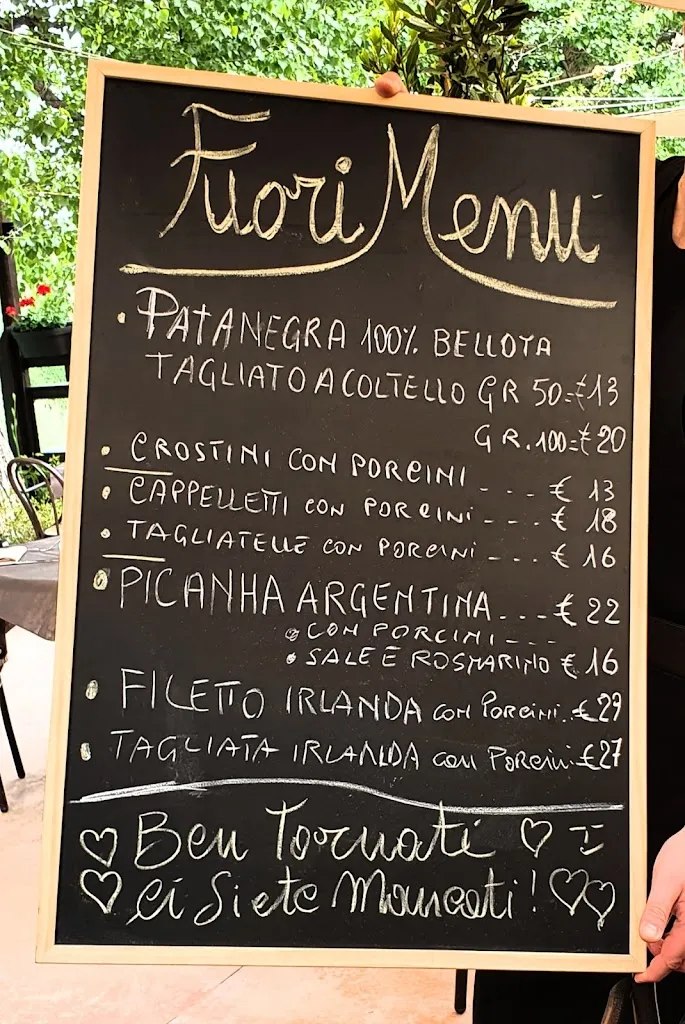 Fuori Menù
• PATANEGRA 100% BELLOTA
TAGLIATO A COLTELLO GR 50=€13
GR.100=€20
• CROSTINI CON PORCINI --- € 13
• CAPPELLETTI CON PORCINI --- € 18
• TAGLIATELLE CON PORCINI --- € 16
• PICANHA ARGENTINA...-€ 22
• CON PORCINI ---
• SALE E ROSMARINO € 16
• FILETTO IRLANDA CON PORCINI..€29
• TAGLIATA IRLANDA CON PORCINI:€27
♡ Ben Tornati ♡
♡ Ci Siete Mancati! ♡♡